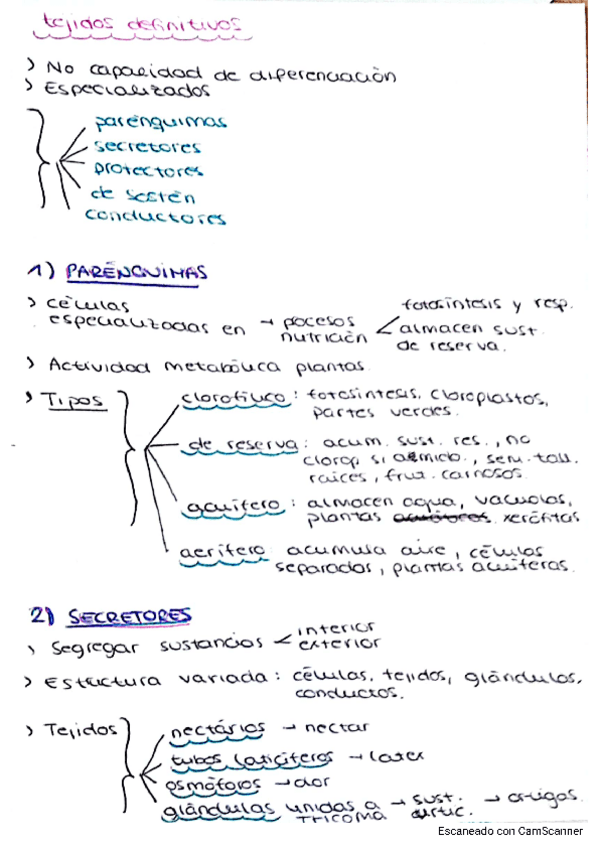 tejidos definitivos
> No capacidad de diferenciación
> Especializados
parénquimas
secretores
protectores
de sostén
conductores
1) PARÉNQUIMAS
> células especializadas en → pocesos nutrición < fotosíntesis y resp.
almacen sust. de reserva.
> Actividad metabólica plantas
> Tipos
clorofílico: fotosíntesis, cloroplastos,
partes verdes.
de reserva: acum. sust. res., no
clorop. si almido., sem. tall.
raíces, frut. carnosos.
acuífero: almacen agua, vacuolas,
plantas xerófitas
aerífero: acumula aire, células
separados, plantas acuíferas.
2) SECRETORES
> Segregar sustancias < interior
exterior
> Estructura variada: células, tejidos, glándulas,
conductos.
> Tejidos
nectários → nectar
tubos laticíferos → latex
osmóforos → olor
glándulas unidas a TRICOMA → sust. urtic. → ortigas.
Escaneado con CamScanner